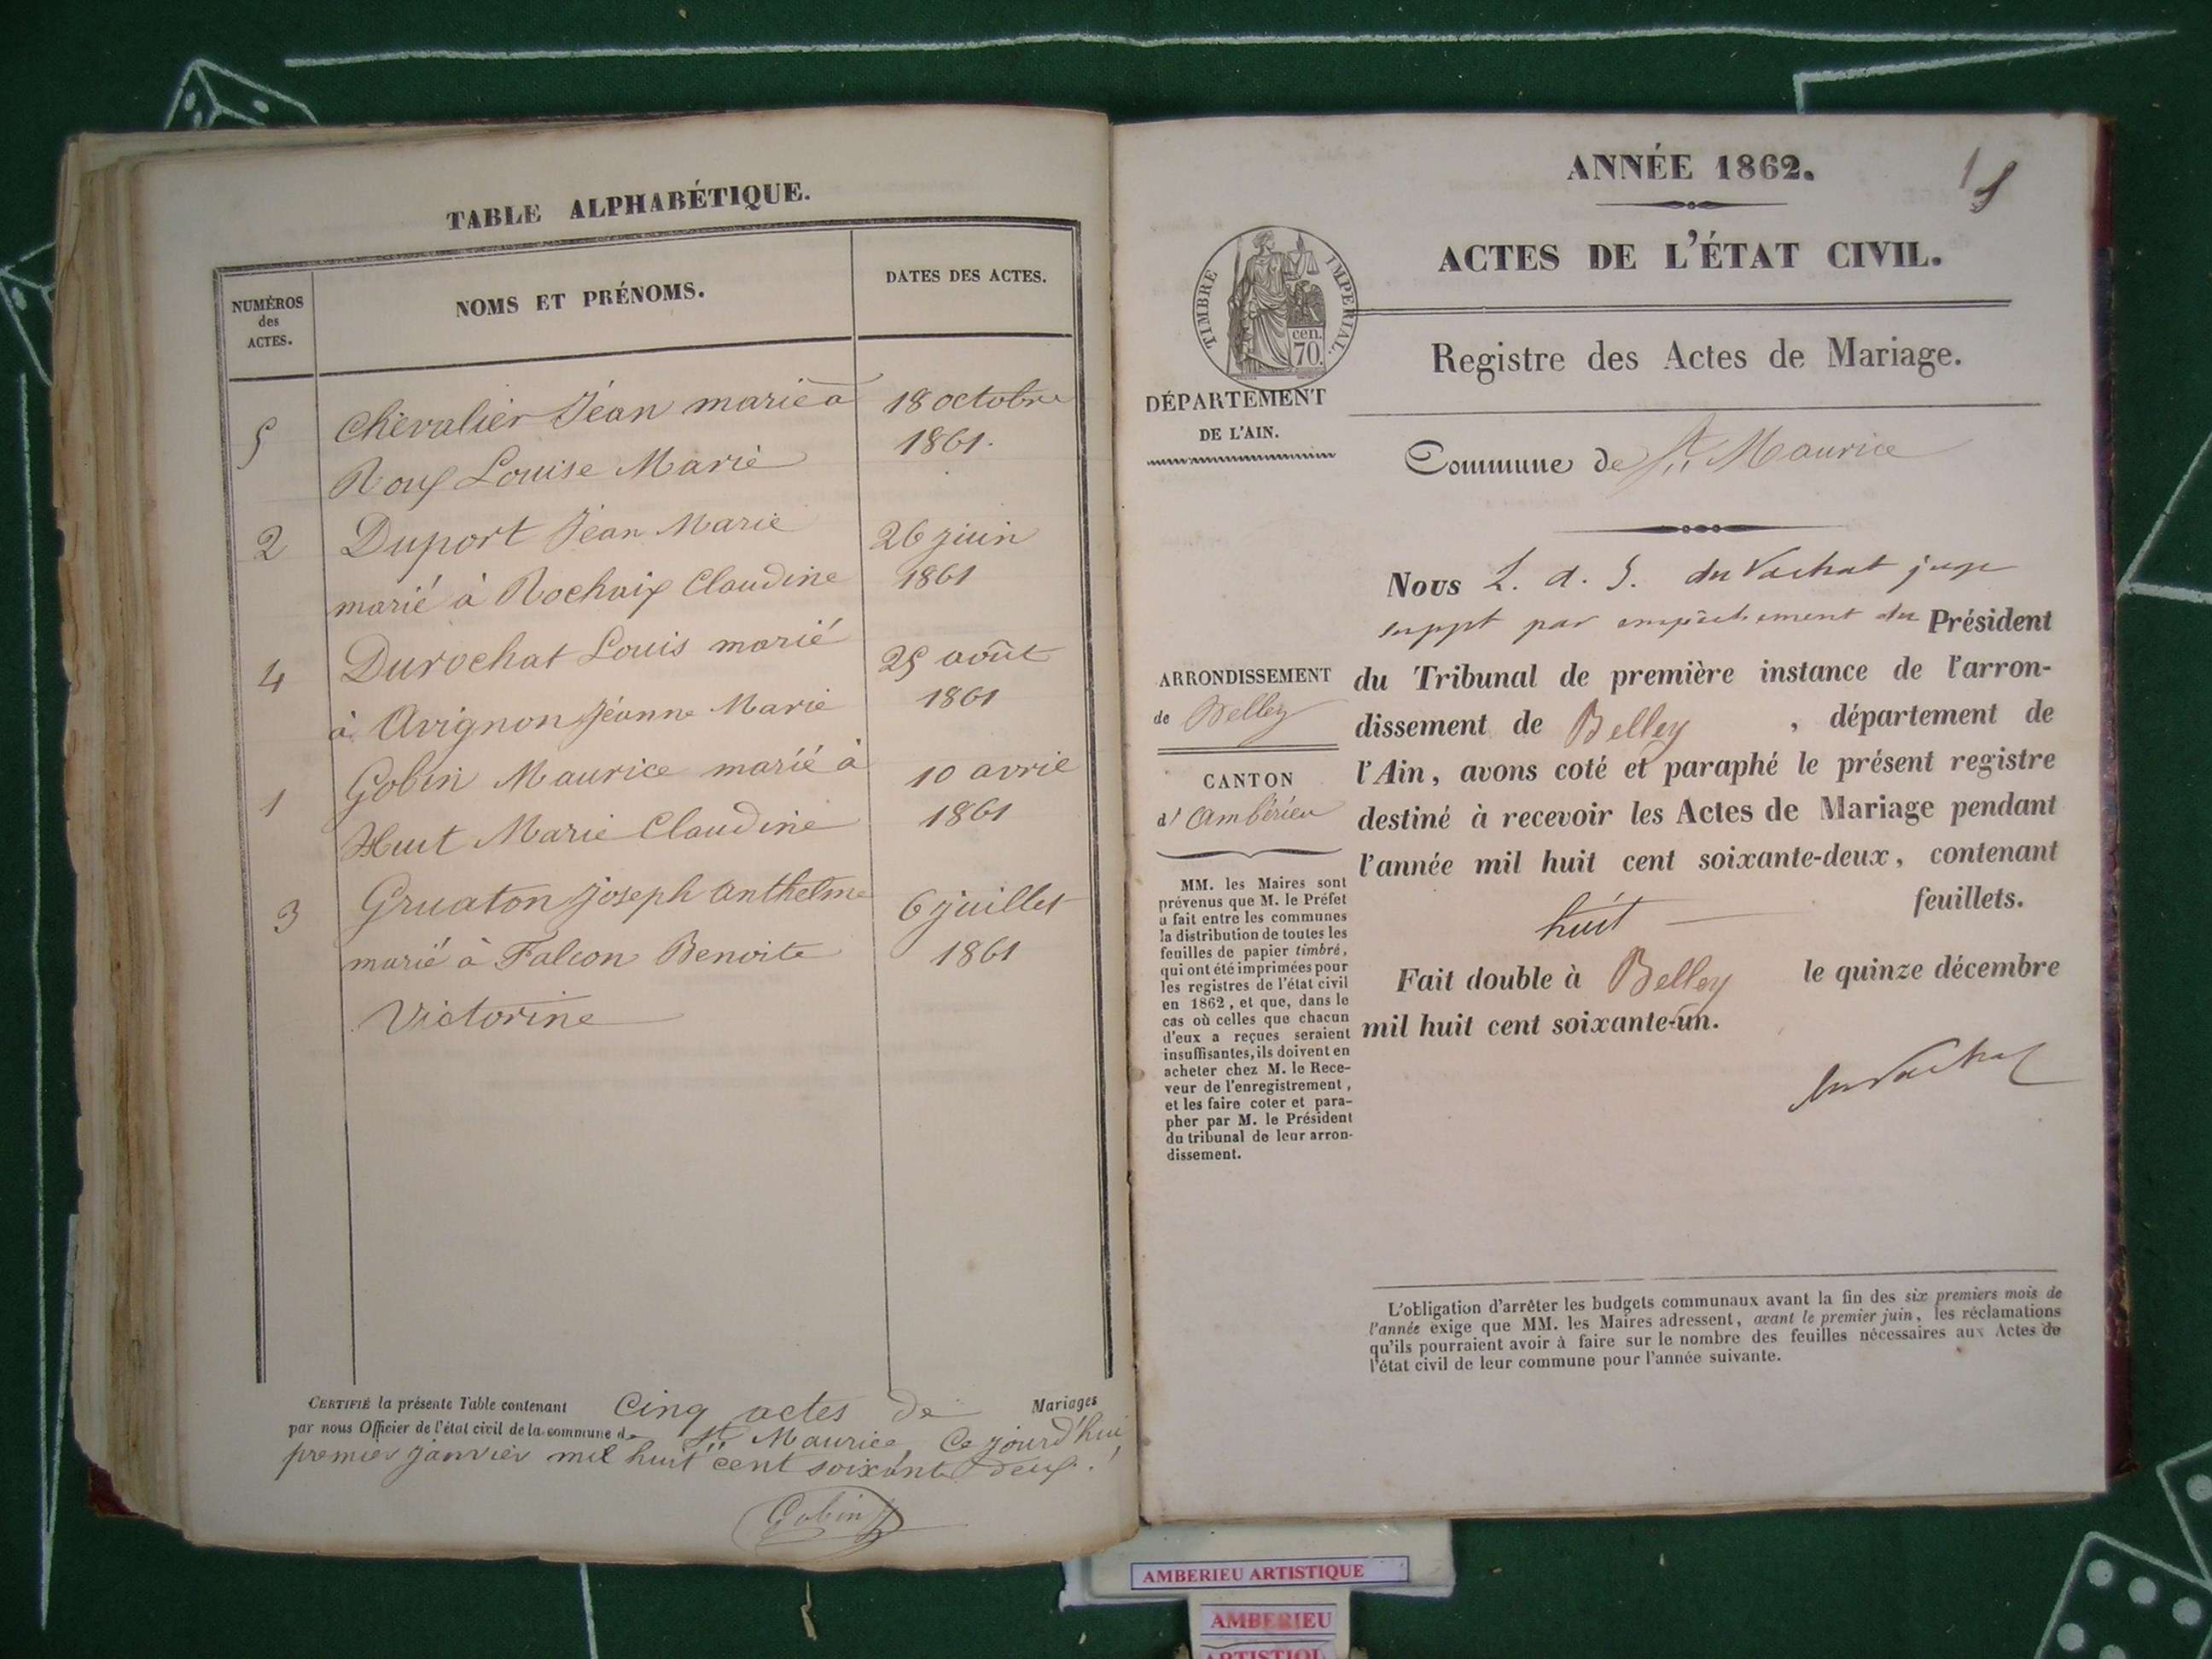 TABLE ALPHABÉTIQUE.
NUMÉROS
des
ACTES.
NOMS ET PRÉNOMS.
DATES DES ACTES.
5 Chevalier Jean marié à 18 octobre
Roux Louise Marie 1861.
2 Duport Jean Marie 26 juin
marié à Rochaix Claudine 1861
4 Durochat Louis marié 25 août
à Avignon Jeanne Marie 1861
1 Gobin Maurice marié à 10 avril
Huut Marie Claudine 1861
3 Gruaton Joseph Anthelme 6 juillet
marié à Falcon Benoite 1861
Victorine
CERTIFIÉ la présente Table contenant Cinq actes de Mariages
par nous Officier de l'état civil de la commune de St Maurice, Ce jourd'hui
premier janvier mil huit cent soixante deux.
Gobin
ANNÉE 1862.
ACTES DE L'ÉTAT CIVIL.
TIMBRE IMPERIAL.
cen.
70.
Registre des Actes de Mariage.
DÉPARTEMENT
DE L'AIN.
Commune de St Maurice
Nous L. d. S. du Vachat juge
suppt par empêchement du Président
du Tribunal de première instance de l'arron-
dissement de Belley , département de
l'Ain, avons coté et paraphé le présent registre
destiné à recevoir les Actes de Mariage pendant
l'année mil huit cent soixante-deux, contenant
huit feuillets.
Fait double à Belley le quinze décembre
mil huit cent soixante-un.
du Vachat
ARRONDISSEMENT
de Belley
CANTON
d'Ambérieu
MM. les Maires sont
prévenus que M. le Préfet
a fait entre les communes
la distribution de toutes les
feuilles de papier timbré,
qui ont été imprimées pour
les registres de l'état civil
en 1862, et que, dans le
cas où celles que chacun
d'eux a reçues seraient
insuffisantes, ils doivent en
acheter chez M. le Rece-
veur de l'enregistrement,
et les faire coter et para-
pher par M. le Président
du tribunal de leur arron-
dissement.
L'obligation d'arrêter les budgets communaux avant la fin des six premiers mois de
l'année exige que MM. les Maires adressent, avant le premier juin, les réclamations
qu'ils pourraient avoir à faire sur le nombre des feuilles nécessaires aux Actes de
l'état civil de leur commune pour l'année suivante.
AMBERIEU ARTISTIQUE
AMBERIEU